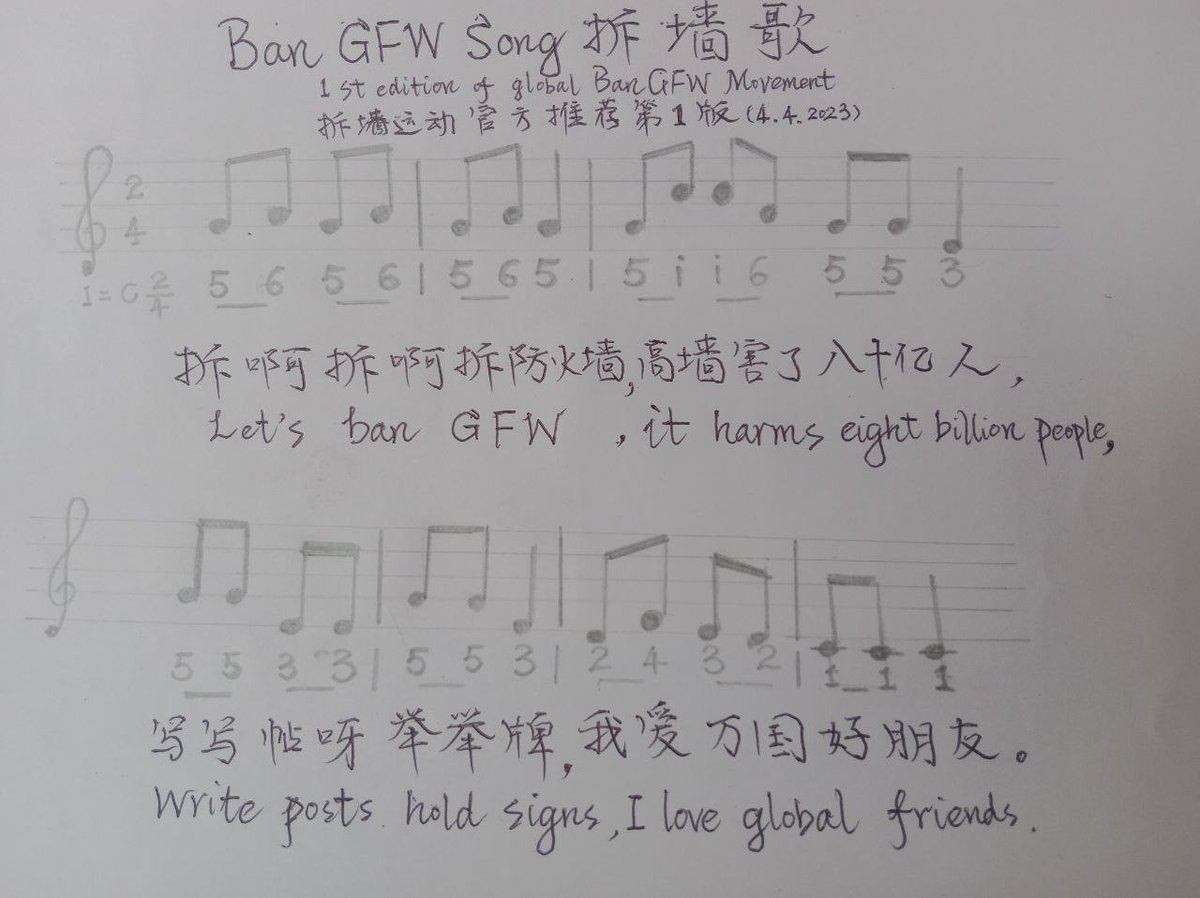 Ban GFW Song 拆墙歌
1st edition of global BanGFW Movement
拆墙运动官方推荐第1版(4.4.2023)
2
4
1=C 2/4 5 6 5 6 | 5 6 5 | 5 i i 6 5 5 3
拆啊拆啊拆防火墙,高墙害了八十亿人,
Let's ban GFW , it harms eight billion people,
5 5 3 3 | 5 5 3 | 2 4 3 2 | 1 1 1
写写帖呀举举牌,我爱万国好朋友。
Write posts hold signs, I love global friends.